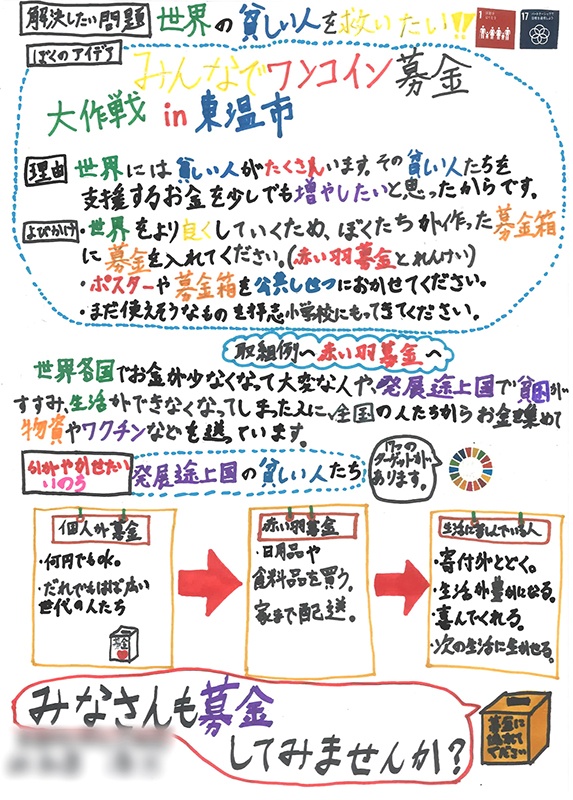 解決したい問題 世界の貧しい人を救いたい!!
1
17
ぼくのアイデア
みんなでワンコイン募金
大作戦 in 東温市
理由 世界には貧しい人がたくさんいます。その貧しい人たちを
支援するお金を少しでも増やしたいと思ったからです。
よびかけ ・世界をより良くしていくため、ぼくたちが作った募金箱
に募金を入れてください。(赤い羽募金とれんけい)
・ポスターや募金箱を公共しせつにおかせてください。
・まだ使えそうなものを拝志小学校にもってきてください。
取組例へ赤い羽募金へ
世界各国でお金が少なくなって大変な人や、発展途上国で貧困が
すすみ、生活ができなくなってしまった人に、全国の人たちからお金を集めて
物資やワクチンなどを送っています。
かがやかせたい
いのち
発展途上国の貧しい人たち
17の
ターゲットが
あります。
個人が募金
・何円でもok。
・だれでもはば広い
世代の人たち
募金
赤い羽募金
・日用品や
食料品を買う。
家まで配送。
生活に苦しんでいる人
・寄付がとどく。
・生活が豊かになる。
・喜んでくれる。
・次の生活に生かせる。
みなさんも募金
してみませんか?
募金に
協力して
ください